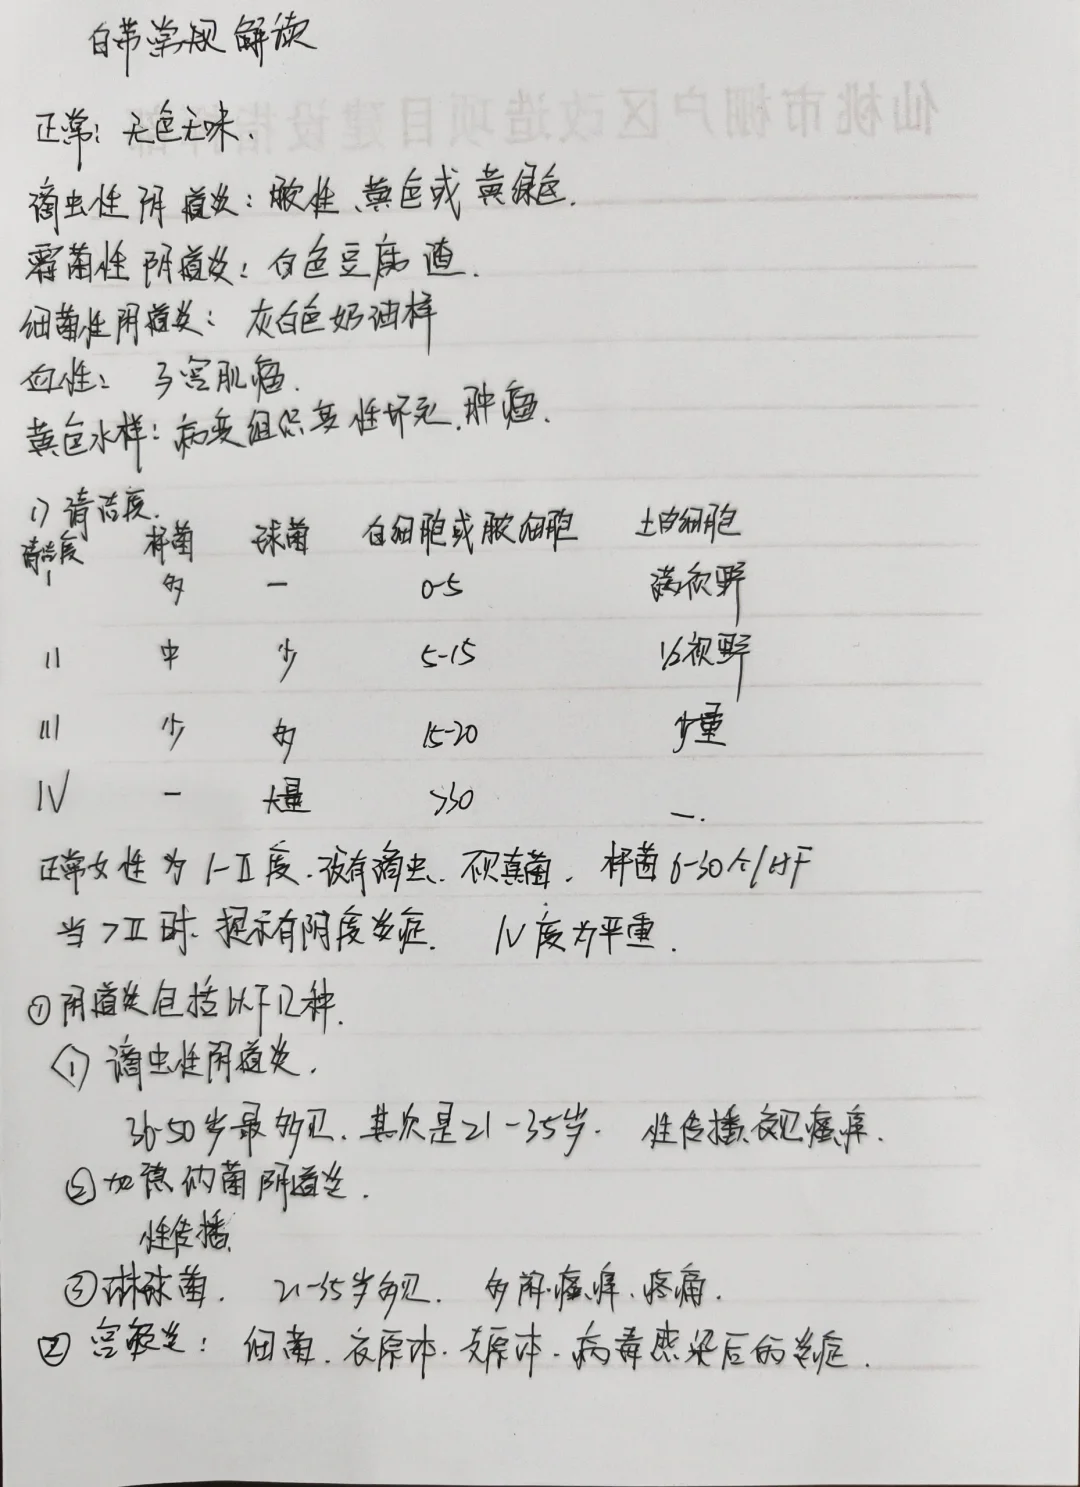 白带常规解读
正常：无色无味、
滴虫性阴道炎：脓性、黄色或黄绿色.
霉菌性阴道炎：白色豆腐渣.
细菌性阴道炎：灰白色奶油样
血性：子宫肌瘤.
黄色水样：病变组织变性坏死.肿瘤.
1) 清洁度.
清洁度 杆菌 球菌 白细胞或脓细胞 上皮细胞
I 多 一 0-5 满视野
II 中 少 5-15 1/2视野
III 少 多 15-20 少量
IV 一 大量 >30 一.
正常女性为I-II度.没有滴虫.不见真菌. 杆菌6-30个/HF
当>II时、提示有阴道炎症. IV度为严重.
① 阴道炎包括以下几种.
〈1〉滴虫性阴道炎.
36-50岁最多见.其次是21-35岁. 性传播.夜间瘙痒.
② 加德纳菌阴道炎.
性传播
③ 淋球菌. 21-35岁多见. 多阴瘙痒.疼痛.
② 宫颈炎：细菌.衣原体.支原体.病毒感染后的炎症.
仙桃市棚户区改造项目建设指挥部